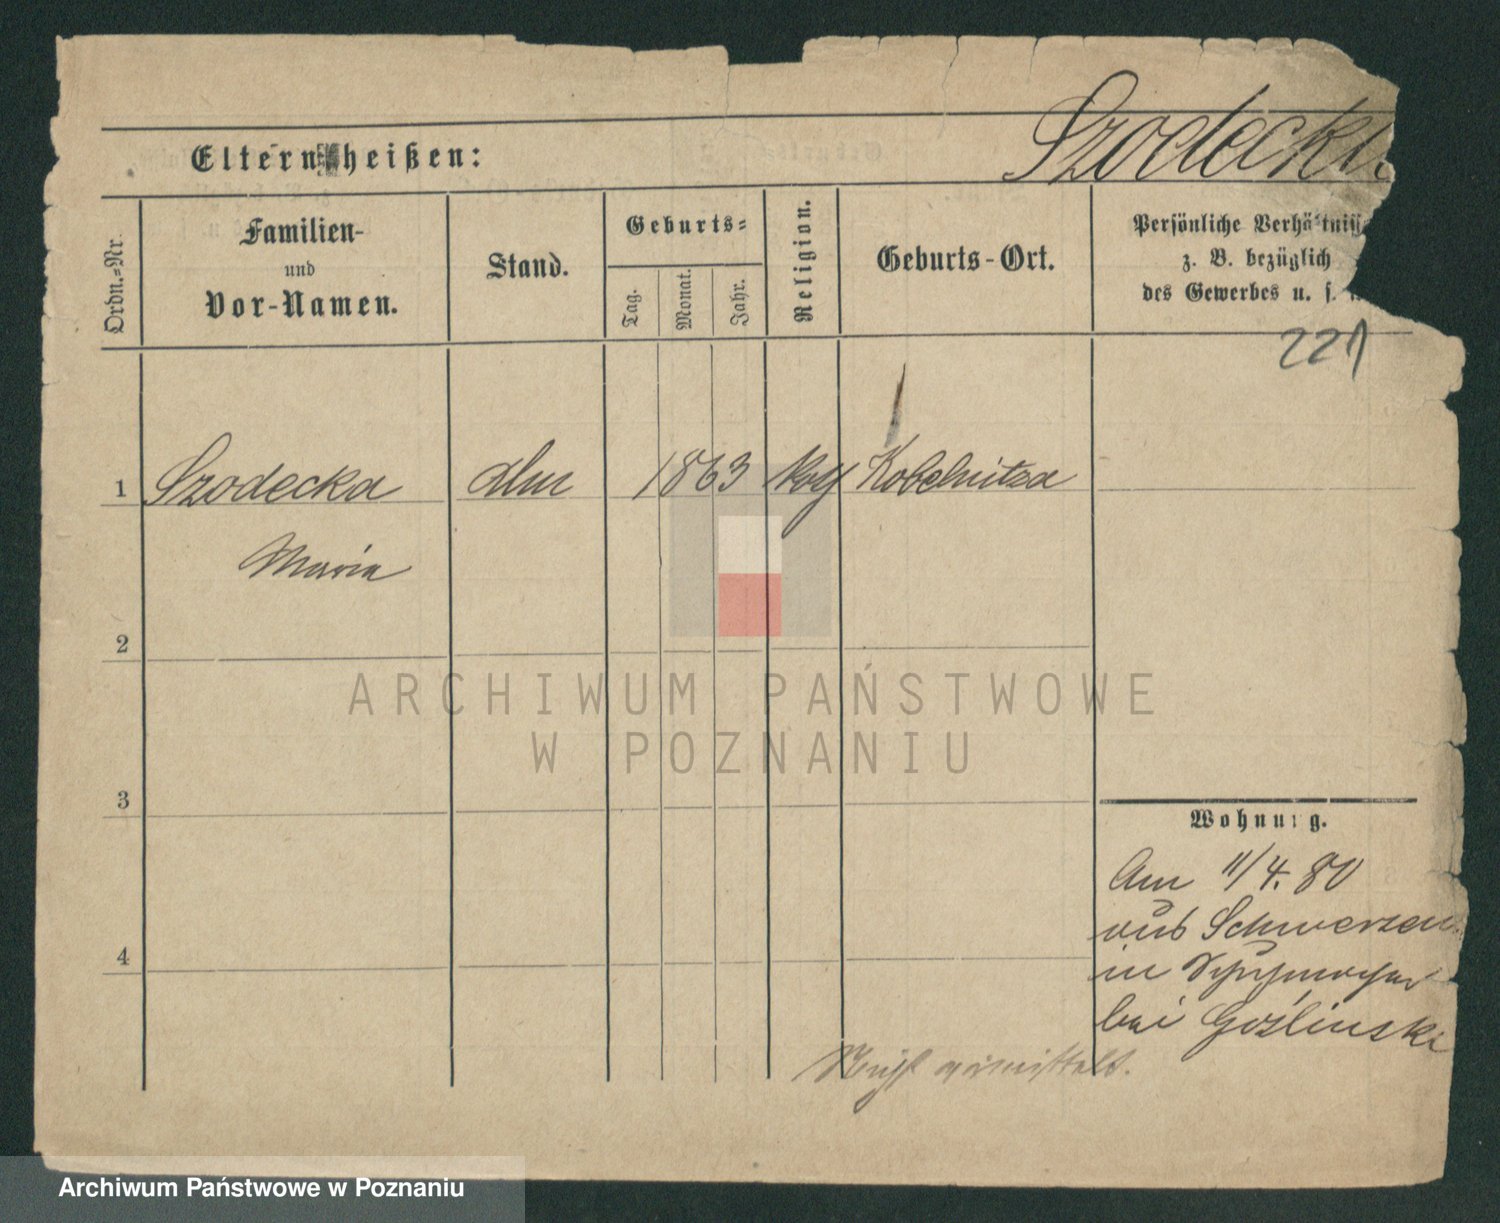 Szodecki
Eltern heißen:
Ordn.=Nr.
Familien-
und
Vor-Namen.
Stand.
Geburts=
Tag.
Monat.
Jahr.
Religion.
Geburts-Ort.
Persönliche Verhältniss
z. B. bezüglich
des Gewerbes u. s.
221
1 Szodecka 1863 Kobelnitza
Maria
2
3
4
Wohnung.
Am 11/4. 80
aus Schwersen
in
bei Goślinski
Nicht ermittelt.
ARCHIWUM PAŃSTWOWE
W POZNANIU
Archiwum Państwowe w Poznaniu